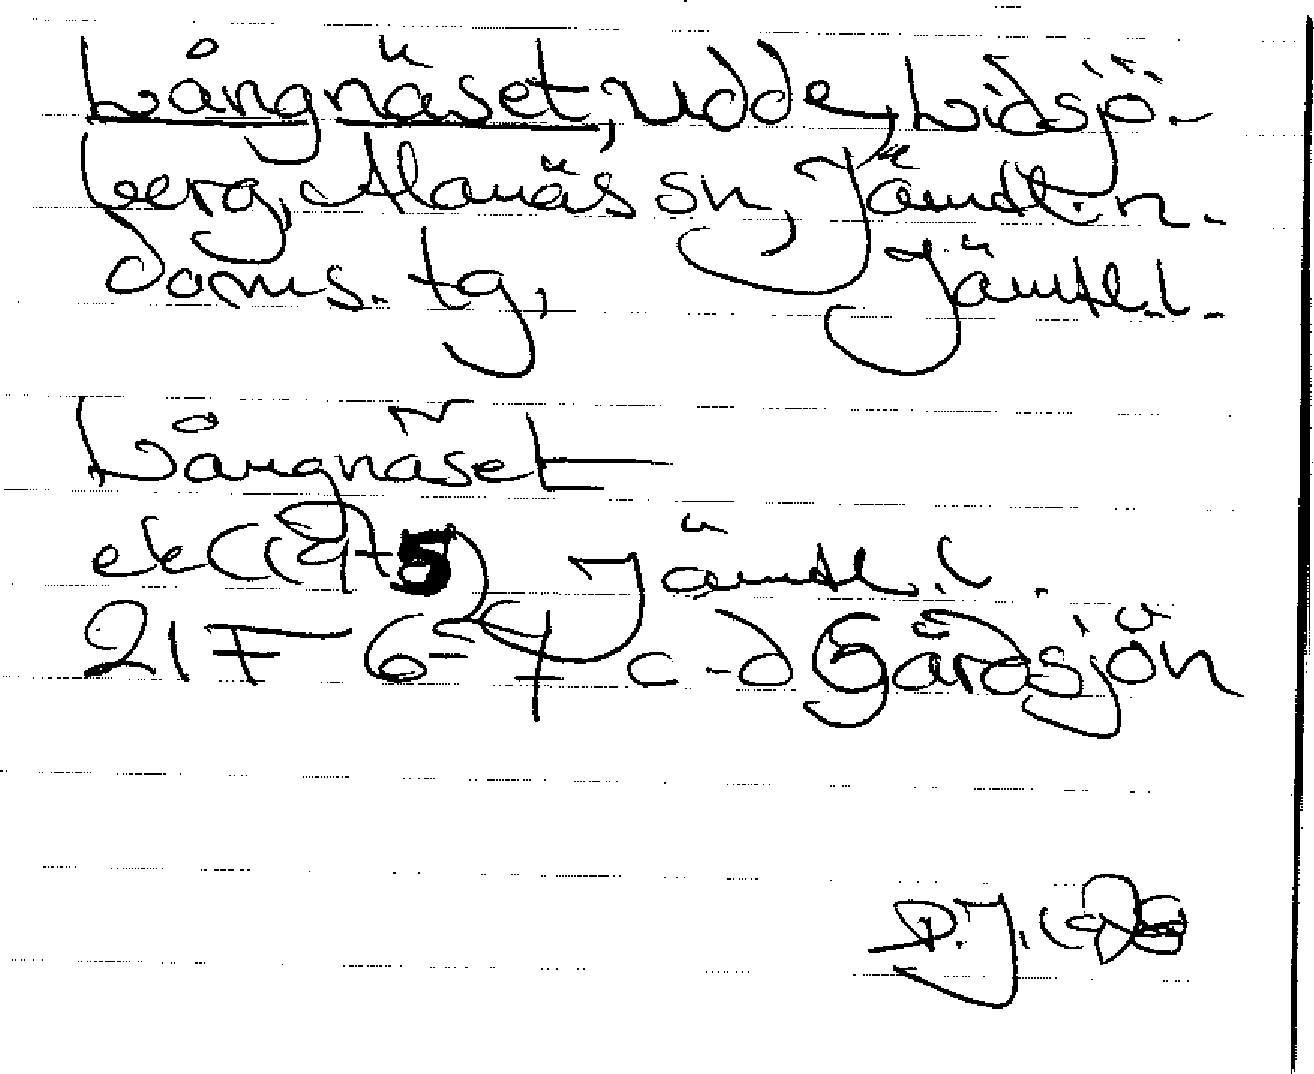 Långnäset, udde, Lidsjö-
berg, Alanäs sn, Jämtl. n.
doms. tg, Jämtl. l.
Långnäset
ek (1945) Jämtl. l.
21F 6-7 c-d Gårdsjön